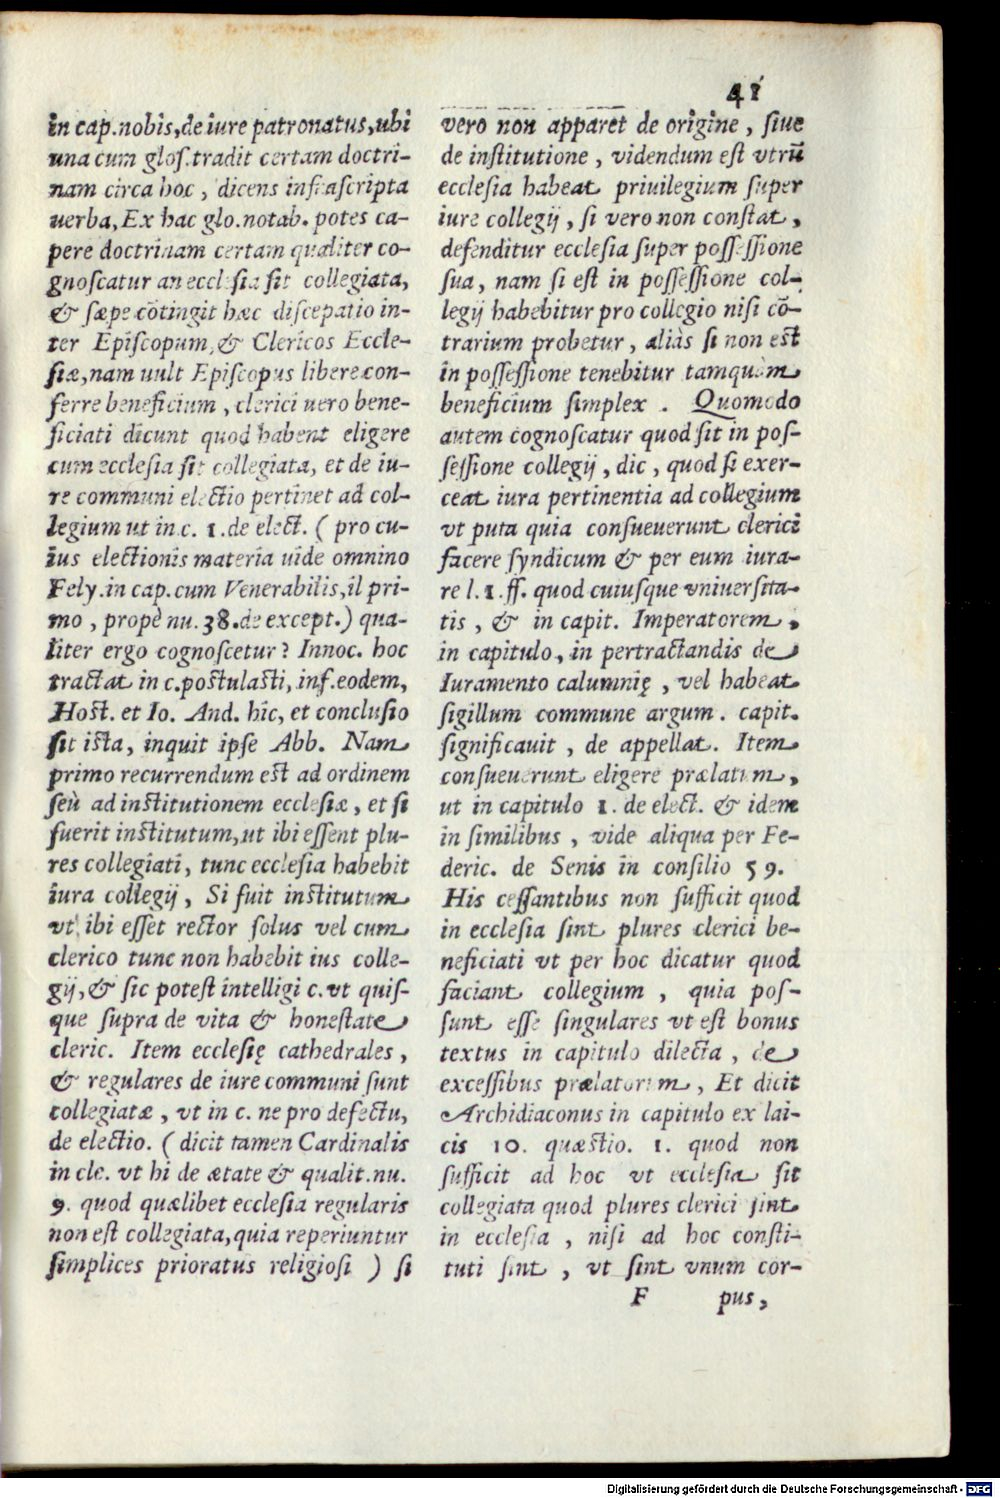 41
in cap.nobis,de iure patronatus,ubi
una cum glos.tradit certam doctri-
nam circa hoc, dicens infrascripta
uerba,Ex hac glo.notab. potes ca-
pere doctrinam certam qualiter co-
gnoscatur an ecclesia sit collegiata,
& sæpe cōtingit hæc disceptatio in-
ter Episcopum,& Clericos Eccle-
siæ,nam uult Episcopus libere con-
ferre beneficium, clerici uero bene-
ficiati dicunt quod habent eligere
cum ecclesia sit collegiata, et de iu-
re communi electio pertinet ad col-
legium ut in c. 1. de elect. ( pro cu-
ius electionis materia uide omnino
Fely.in cap.cum Venerabilis,il pri-
mo, propè nu. 38.de except.) qua-
liter ergo cognoscetur? Innoc. hoc
tractat in c.postulasti, inf.eodem,
Host. et Io. And. hîc, et conclusio
sit ista, inquit ipse Abb. Nam
primo recurrendum est ad ordinem
seù ad institutionem ecclesiæ, et si
fuerit institutum,ut ibi essent plu-
res collegiati, tunc ecclesia habebit
iura collegij, Si fuit institutum
vt ibi esset rector solus vel cum
clerico tunc non habebit ius colle-
gij,& sic potest intelligi c.vt quis-
que supra de vita & honestate
cleric. Item ecclesię cathedrales,
& regulares de iure communi sunt
collegiatæ, vt in c. ne pro defectu,
de electio. ( dicit tamen Cardinalis
in cle. vt hi de ætate & qualit.nu.
9. quod quælibet ecclesia regularis
non est collegiata,quia reperiuntur
simplices prioratus religiosi ) si
vero non apparet de origine, siue
de institutione, videndum est vtrū
ecclesia habeat priuilegium super
iure collegij, si vero non constat,
defenditur ecclesia super possessione
sua, nam si est in possessione col-
legij habebitur pro collegio nisi cō-
trarium probetur, aliàs si non est
in possessione tenebitur tamquàm
beneficium simplex. Quomodo
autem cognoscatur quod sit in pos-
sessione collegij, dic, quod si exer-
ceat iura pertinentia ad collegium
vt puta quia consueuerunt clerici
facere syndicum & per eum iura-
re l. 1. ff. quod cuiusque vniuersita-
tis, & in capit. Imperatorem,
in capitulo, in pertractandis de
Iuramento calumnię, vel habeat
sigillum commune argum. capit.
significauit, de appellat. Item
consueuerunt eligere prælatum,
ut in capitulo 1. de elect. & idem
in similibus, vide aliqua per Fe-
deric. de Senis in consilio 59.
His cessantibus non sufficit quod
in ecclesia sint plures clerici be-
neficiati vt per hoc dicatur quod
faciant collegium, quia pos-
sunt esse singulares vt est bonus
textus in capitulo dilecta, de
excessibus prælatorum, Et dicit
Archidiaconus in capitulo ex lai-
cis 10. quæstio. 1. quod non
sufficit ad hoc vt ecclesia sit
collegiata quod plures clerici sint
in ecclesia, nisi ad hoc consti-
tuti sint, vt sint vnum cor-
F pus,
Digitalisierung gefördert durch die Deutsche Forschungsgemeinschaft - DFG